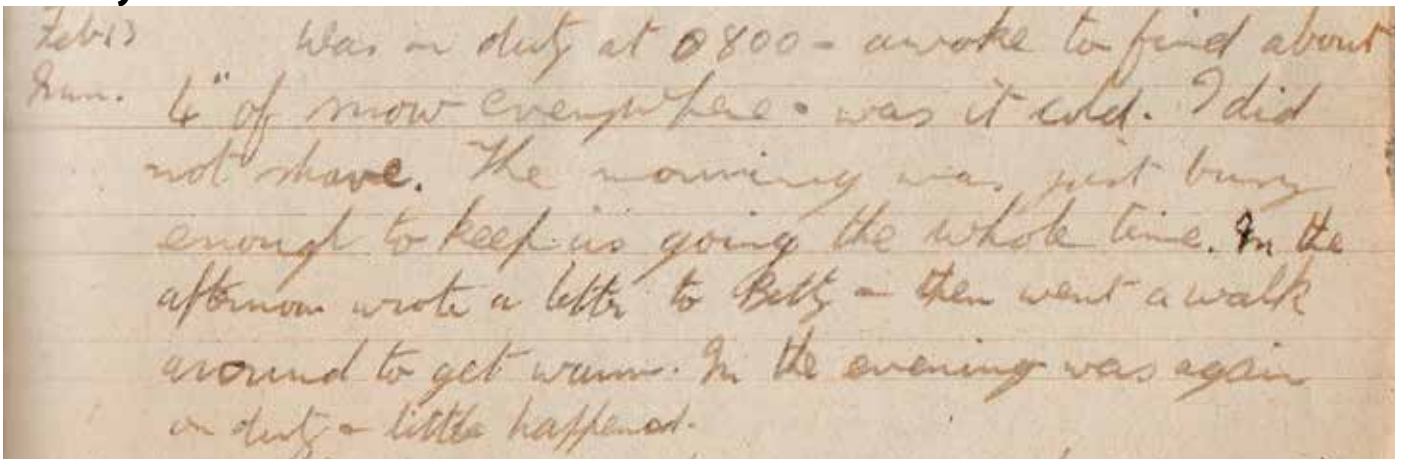 Feb 13 Was on duty at 0800 - awoke to find about
Sun. 4" of snow everywhere - was it cold. I did
not shave. The morning was just busy
enough to keep us going the whole time. In the
afternoon wrote a letter to Betty - then went a walk
around to get warm. In the evening was again
on duty - little happened.